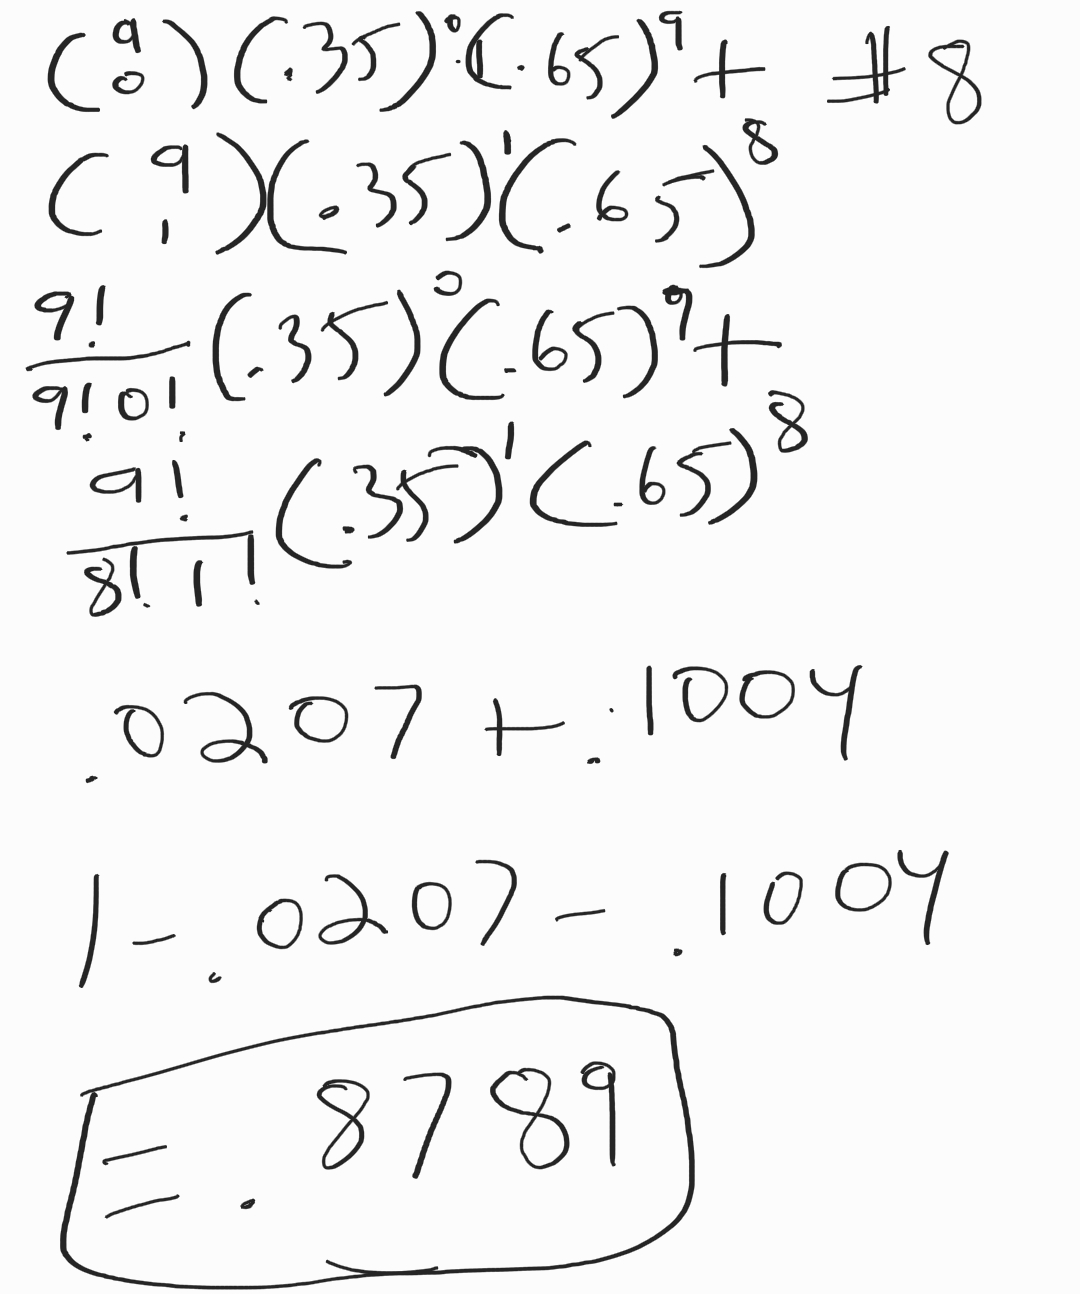 (9 0)(.35)^0 · (.65)^9 + #8
(9 1)(.35)^1 (.65)^8
9!/9!0! (.35)^0 (.65)^9 +
9!/8!1! (.35)^1 (.65)^8
.0207 + .1004
1 - .0207 - .1004
= .8789